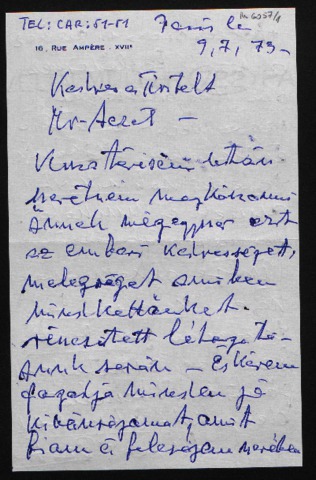 TEL: CAR: 51-51
Ms 6057/4
Paris le
16, RUE AMPÈRE . XVIIe
9, 7, 73-
Kedves és Tisztelt
Mr-Aczél -
Visszatérésem után
szeretném megköszönni
Önnek mégegyszer azt
az emberi kedvességet,
melegséget amiben
mindkettőnket
részesített látogatá-
sunk során - És kérem
fogadja minden jó
kívánságomat, amit
fiam és feleségem nevében